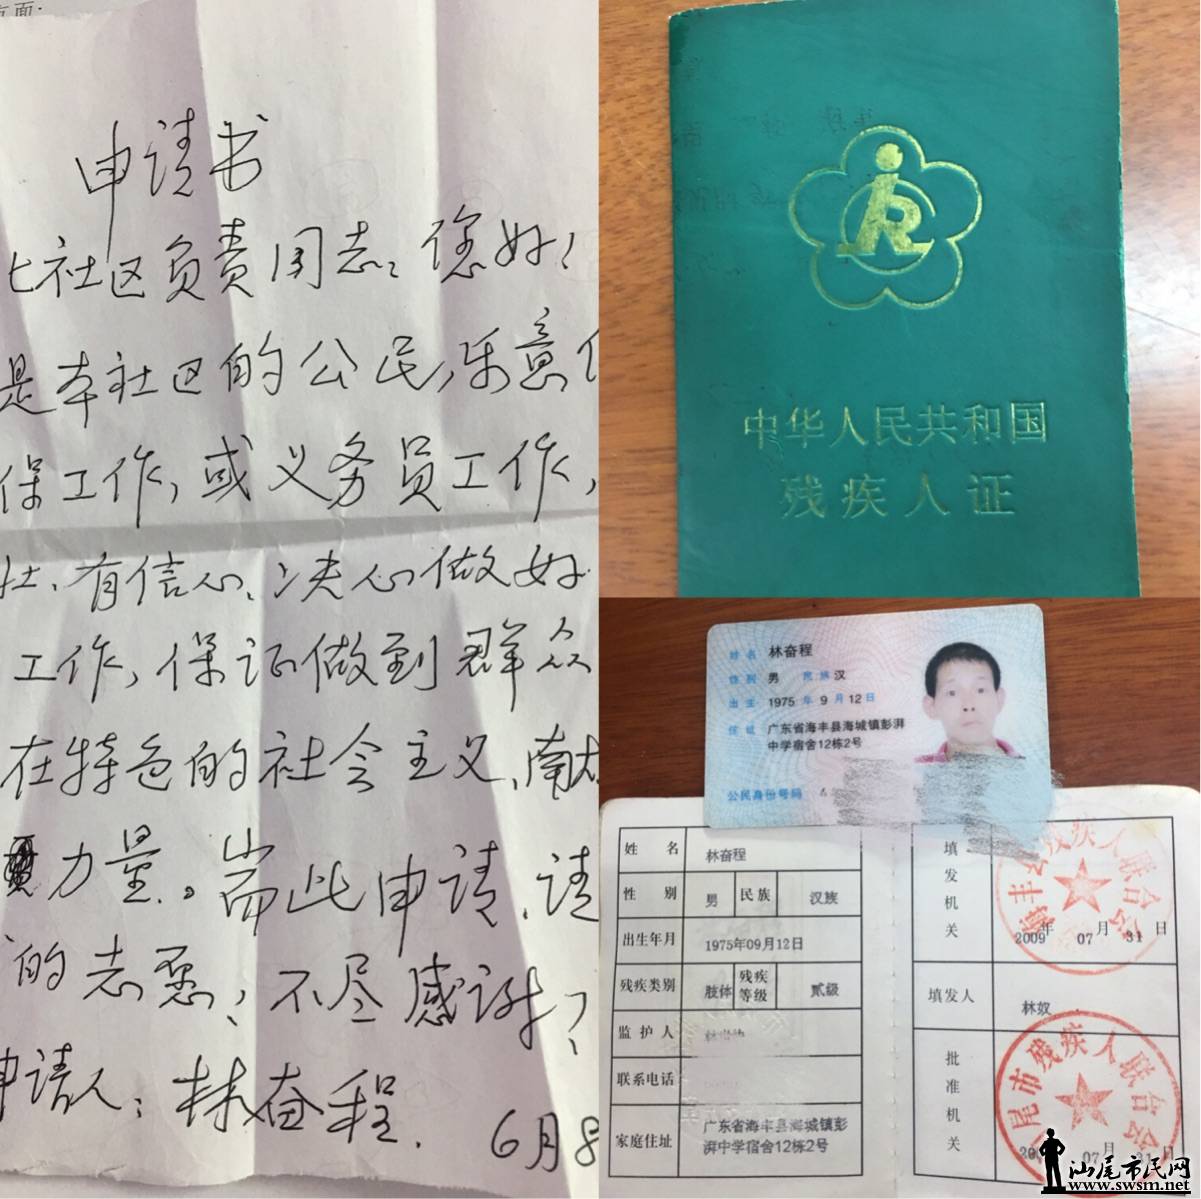 页面:
申请书
七社区负责同志:您好!
是本社区的公民,乐意
保工作,或义务员工作,
社、有信心、决心做好
工作,保证做到群众
在特色的社会主义,献
力量。 耑此申请,请
的志愿,不尽感谢!
申请人:林奋程.
6月8
中华人民共和国
残疾人证
姓名 林奋程
性别 男 民族 汉
出生 1975 年 9 月 12 日
住址 广东省海丰县海城镇彭湃
中学宿舍12栋2号
公民身份号码
姓名 林奋程
性别 男 民族 汉族
出生年月 1975年09月12日
残疾类别 肢体 残疾等级 贰级
监护人
联系电话
家庭住址 广东省海丰县海城镇彭
湃中学宿舍12栋2号
填发机关
海丰县残疾人联合会
2009年 07月 31日
填发人 林奴
批准机关
汕尾市残疾人联合会
07月 31日
汕尾市民网
www.swsm.net